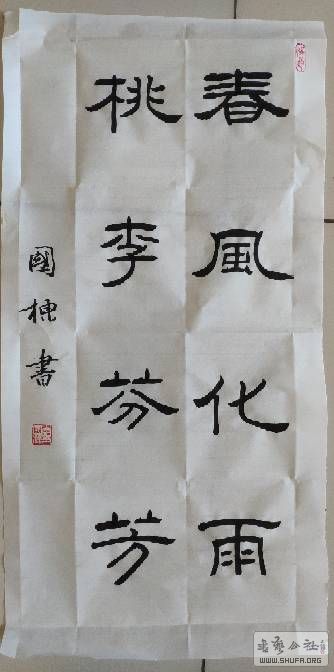 春風化雨
桃李芬芳
國棟書
书艺公社
WWW.SHUFA.ORG